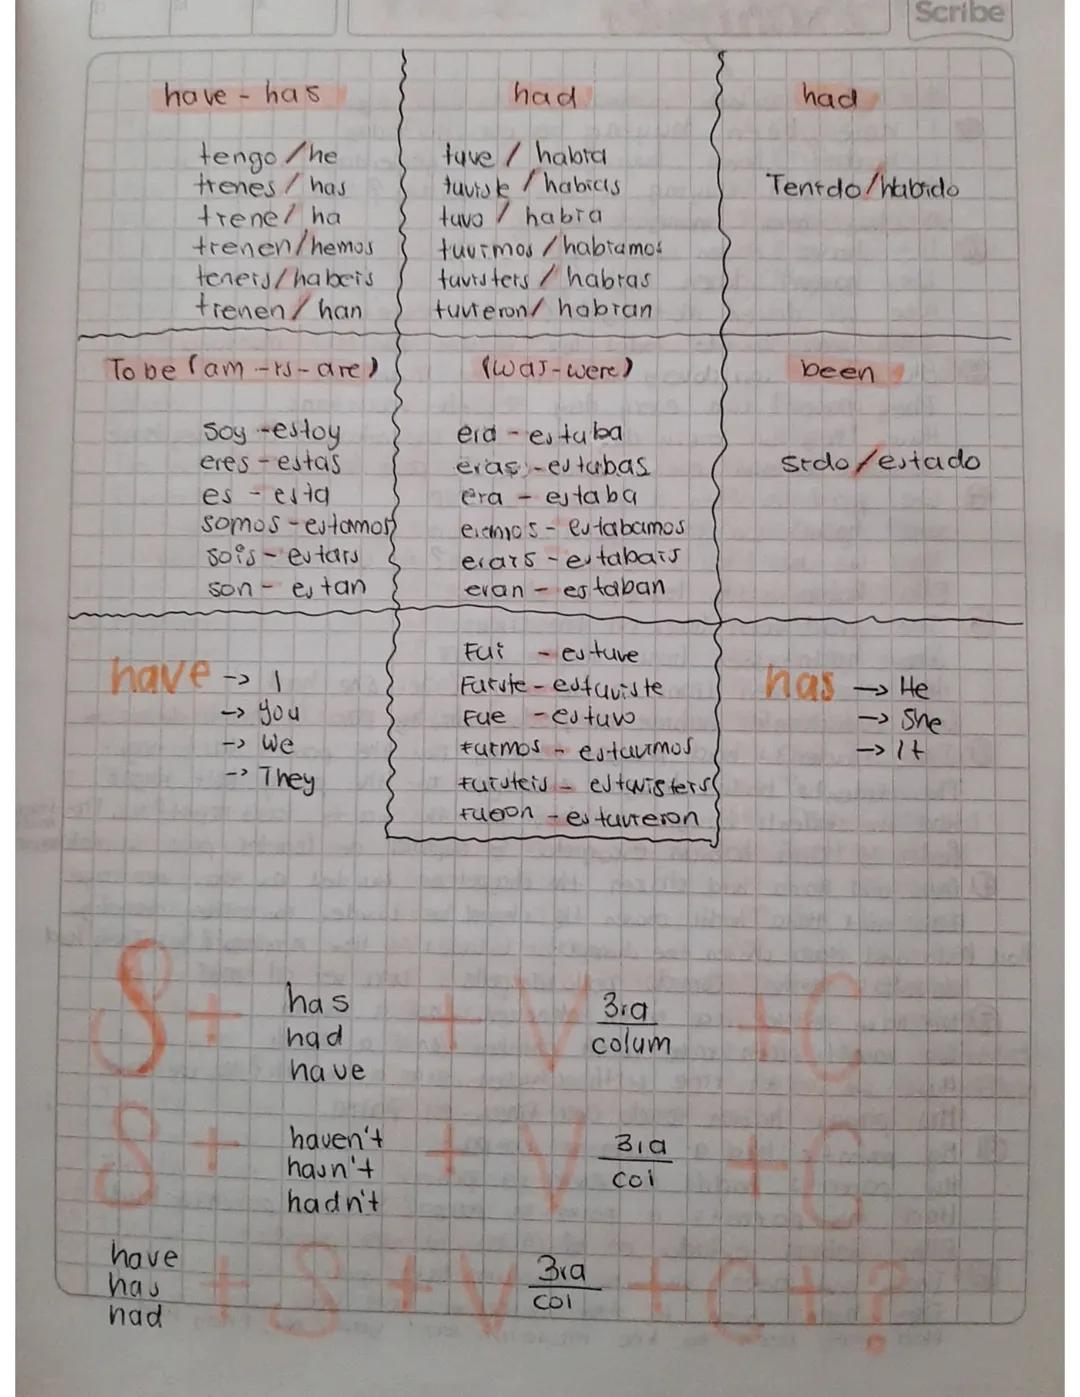 Scribe
have - has
tengo / he
trenes / has
trene / ha
trenen / hemos
teneis / habeis
trenen / han
had
tuve / habra
tuviste / habias
tuvo / habra
tuvimos / habramos
tuvisters / habras
tuvreron / habran
had
Tenrdo / habrdo
To be (am - rs - are)
soy - estoy
eres - estas
es - esta
somos - estamos
sois - estars
son - estan
(was - were)
era - estaba
eras - estabas
era - estaba
eramos - estabamos
erars - estabars
eran - estaban
been
srdo / estado
have -> I
-> you
-> we
-> They
Fui - estuve
Furste - estuviste
Fue - estuvo
Furmos - estuvrmos
Fursteis - estuvisters
Fueron - estuvreron
has -> He
-> She
-> It
S + has had have + V 3ra colum + C
S + haven't hasn't hadn't + V 3ra col + C
have has had + S + V 3ra col + C + ?